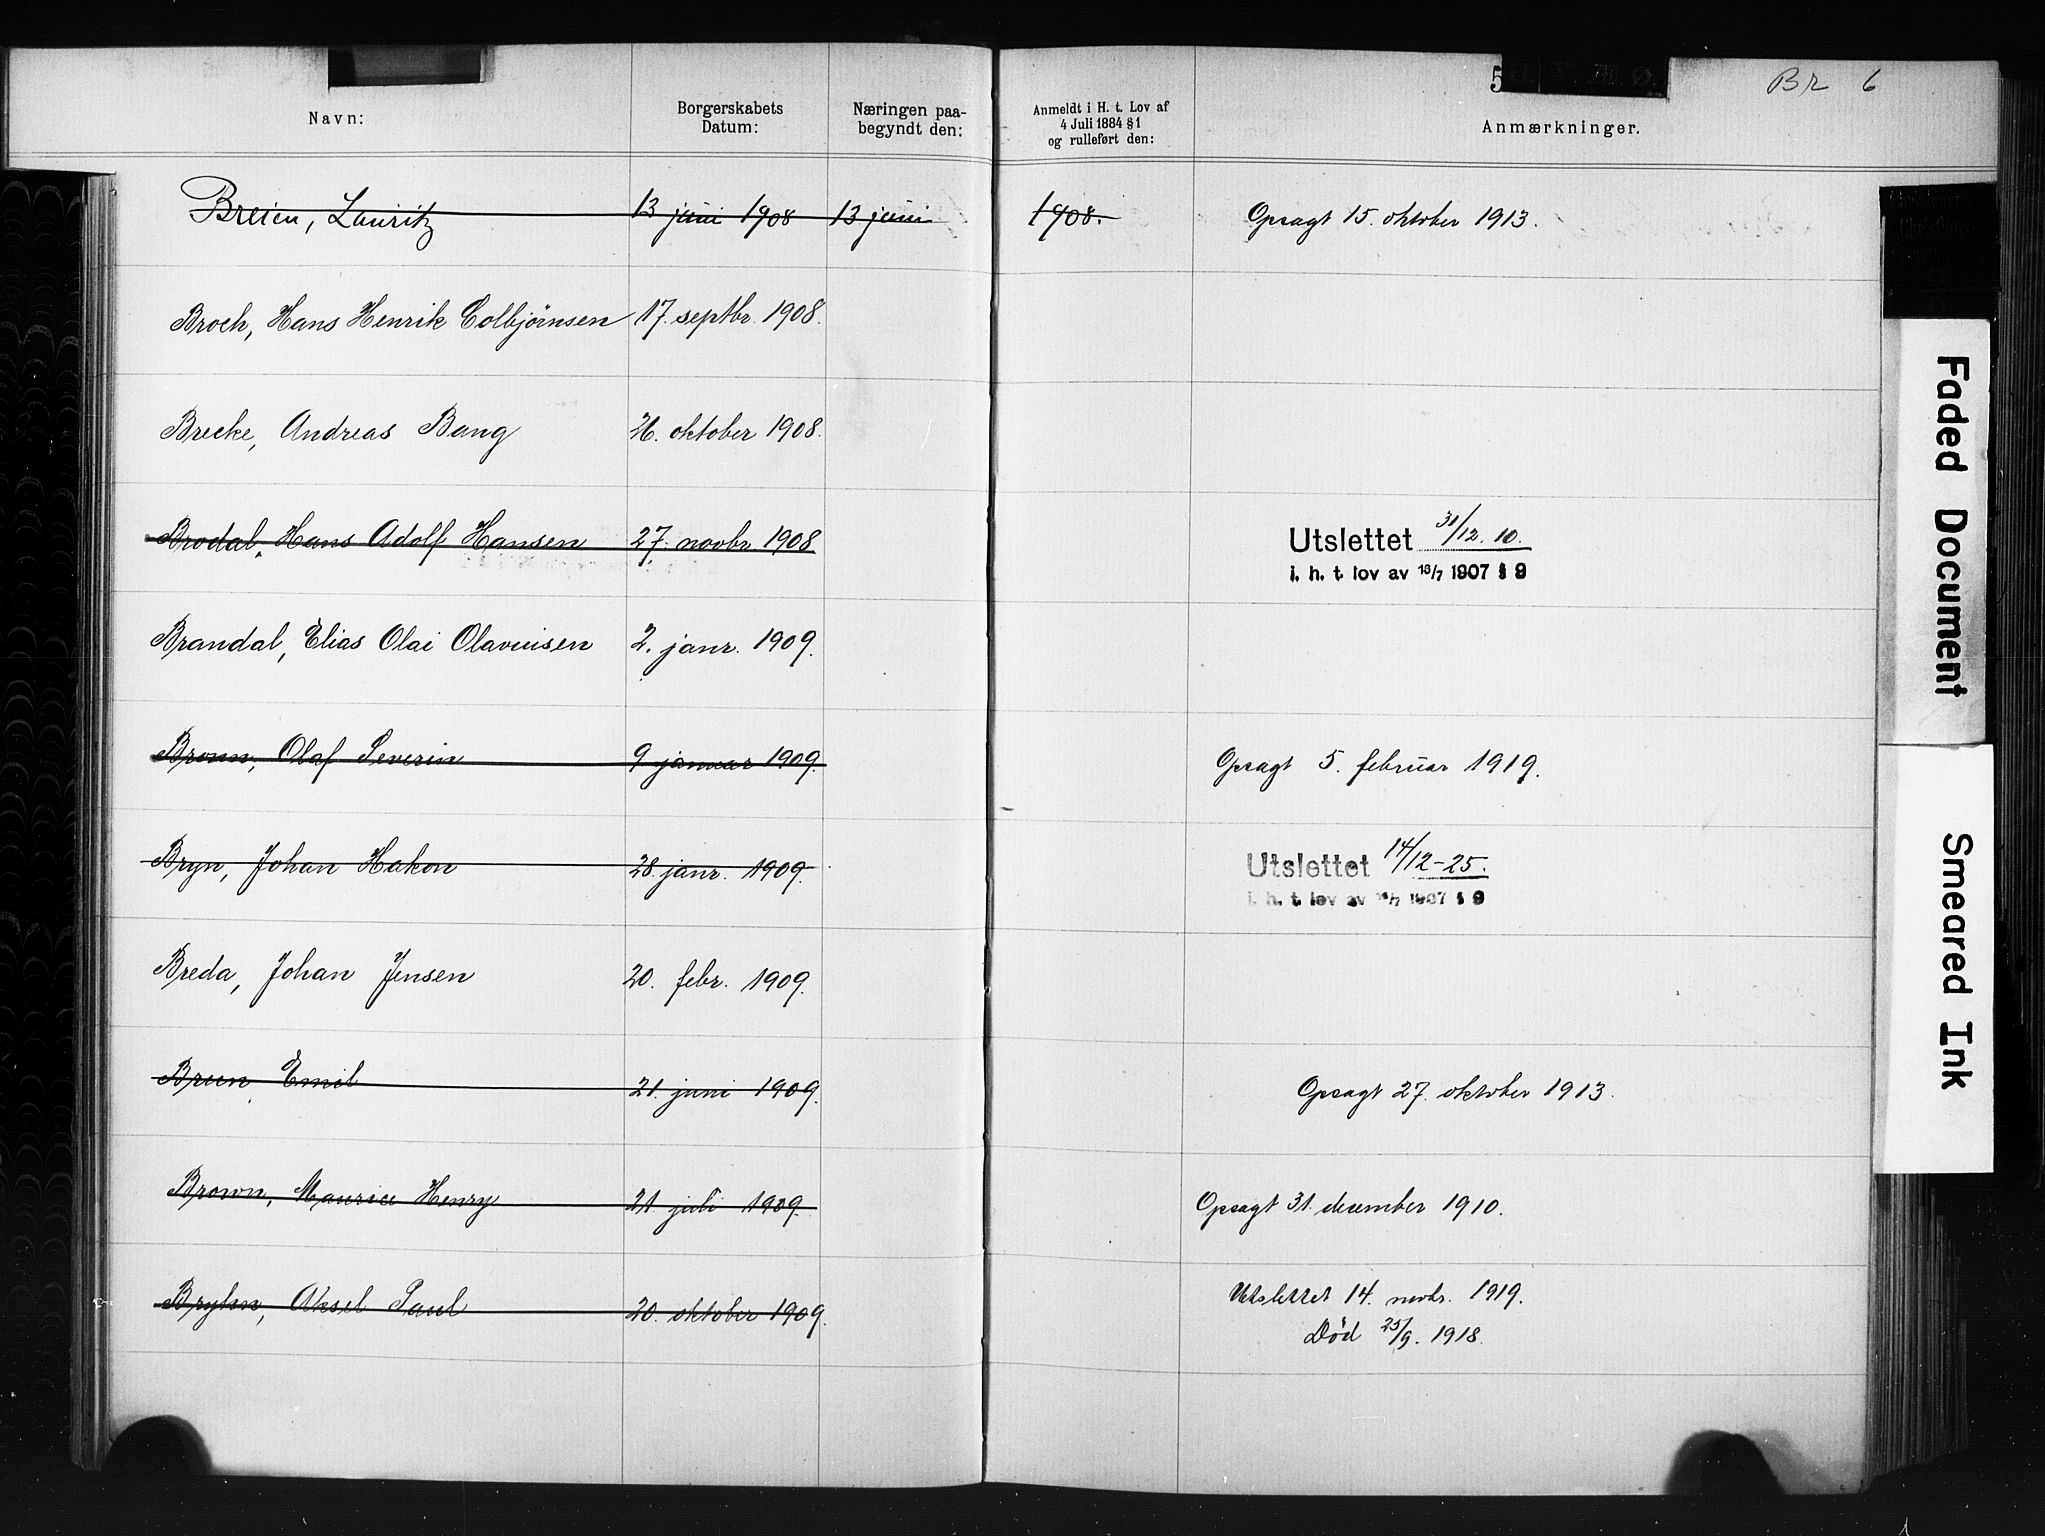 5
Br 6
Navn:
Borgerskabets Datum:
Næringen paa-begyndt den:
Anmeldt i H. t. Lov af 4 Juli 1884 § 1 og rulleført den:
Anmærkninger.
Breien, Lauritz 13 juni 1908 13 juni 1908. Opsagt 15. oktober 1913.
Broch, Hans Henrik Colbjørnsen 17. septbr. 1908.
Brecke, Andreas Bang 26. oktober 1908.
Brodal, Hans Adolf Hansen 27. novbr. 1908 Utslettet 31/12. 10.
i. h. t. lov av 13/7 1907 § 9
Brandal, Elias Olai Olavinsen 2. janr. 1909.
Bronn, Olaf Severin 9 januar 1909. Opsagt 5. februar 1919.
Bryn, Johan Hakon 28. janr. 1909. Utslettet 14/12-25.
i. h. t. lov av 1907 § 9
Breda, Johan Jensen 20. febr. 1909.
Breen, Emil 21. juni 1909. Opsagt 27. oktober 1913.
Brown, Maurice Henry 21 juli 1909. Opsagt 31. desember 1910.
Bryhn, Aksel Paul 20. oktober 1909. Utslettet 14. novbr. 1919.
Død 25/9. 1918.
Faded Document
Smeared Ink